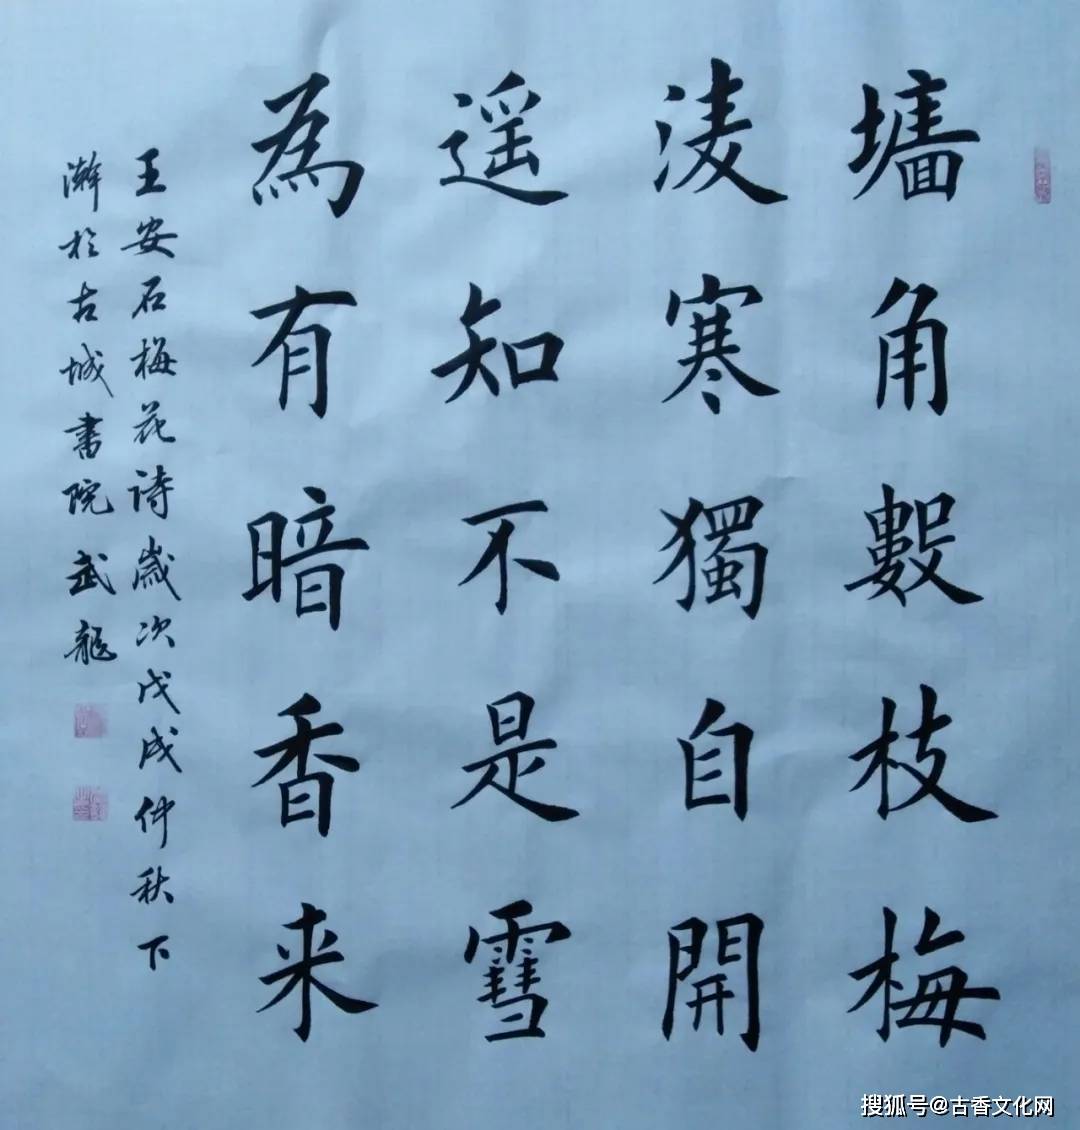 墻角數枝梅
淩寒獨自開
遥知不是雪
為有暗香来
王安石梅花诗歲次戊戌仲秋下
澣於古城書院武龍
搜狐号@古香文化网